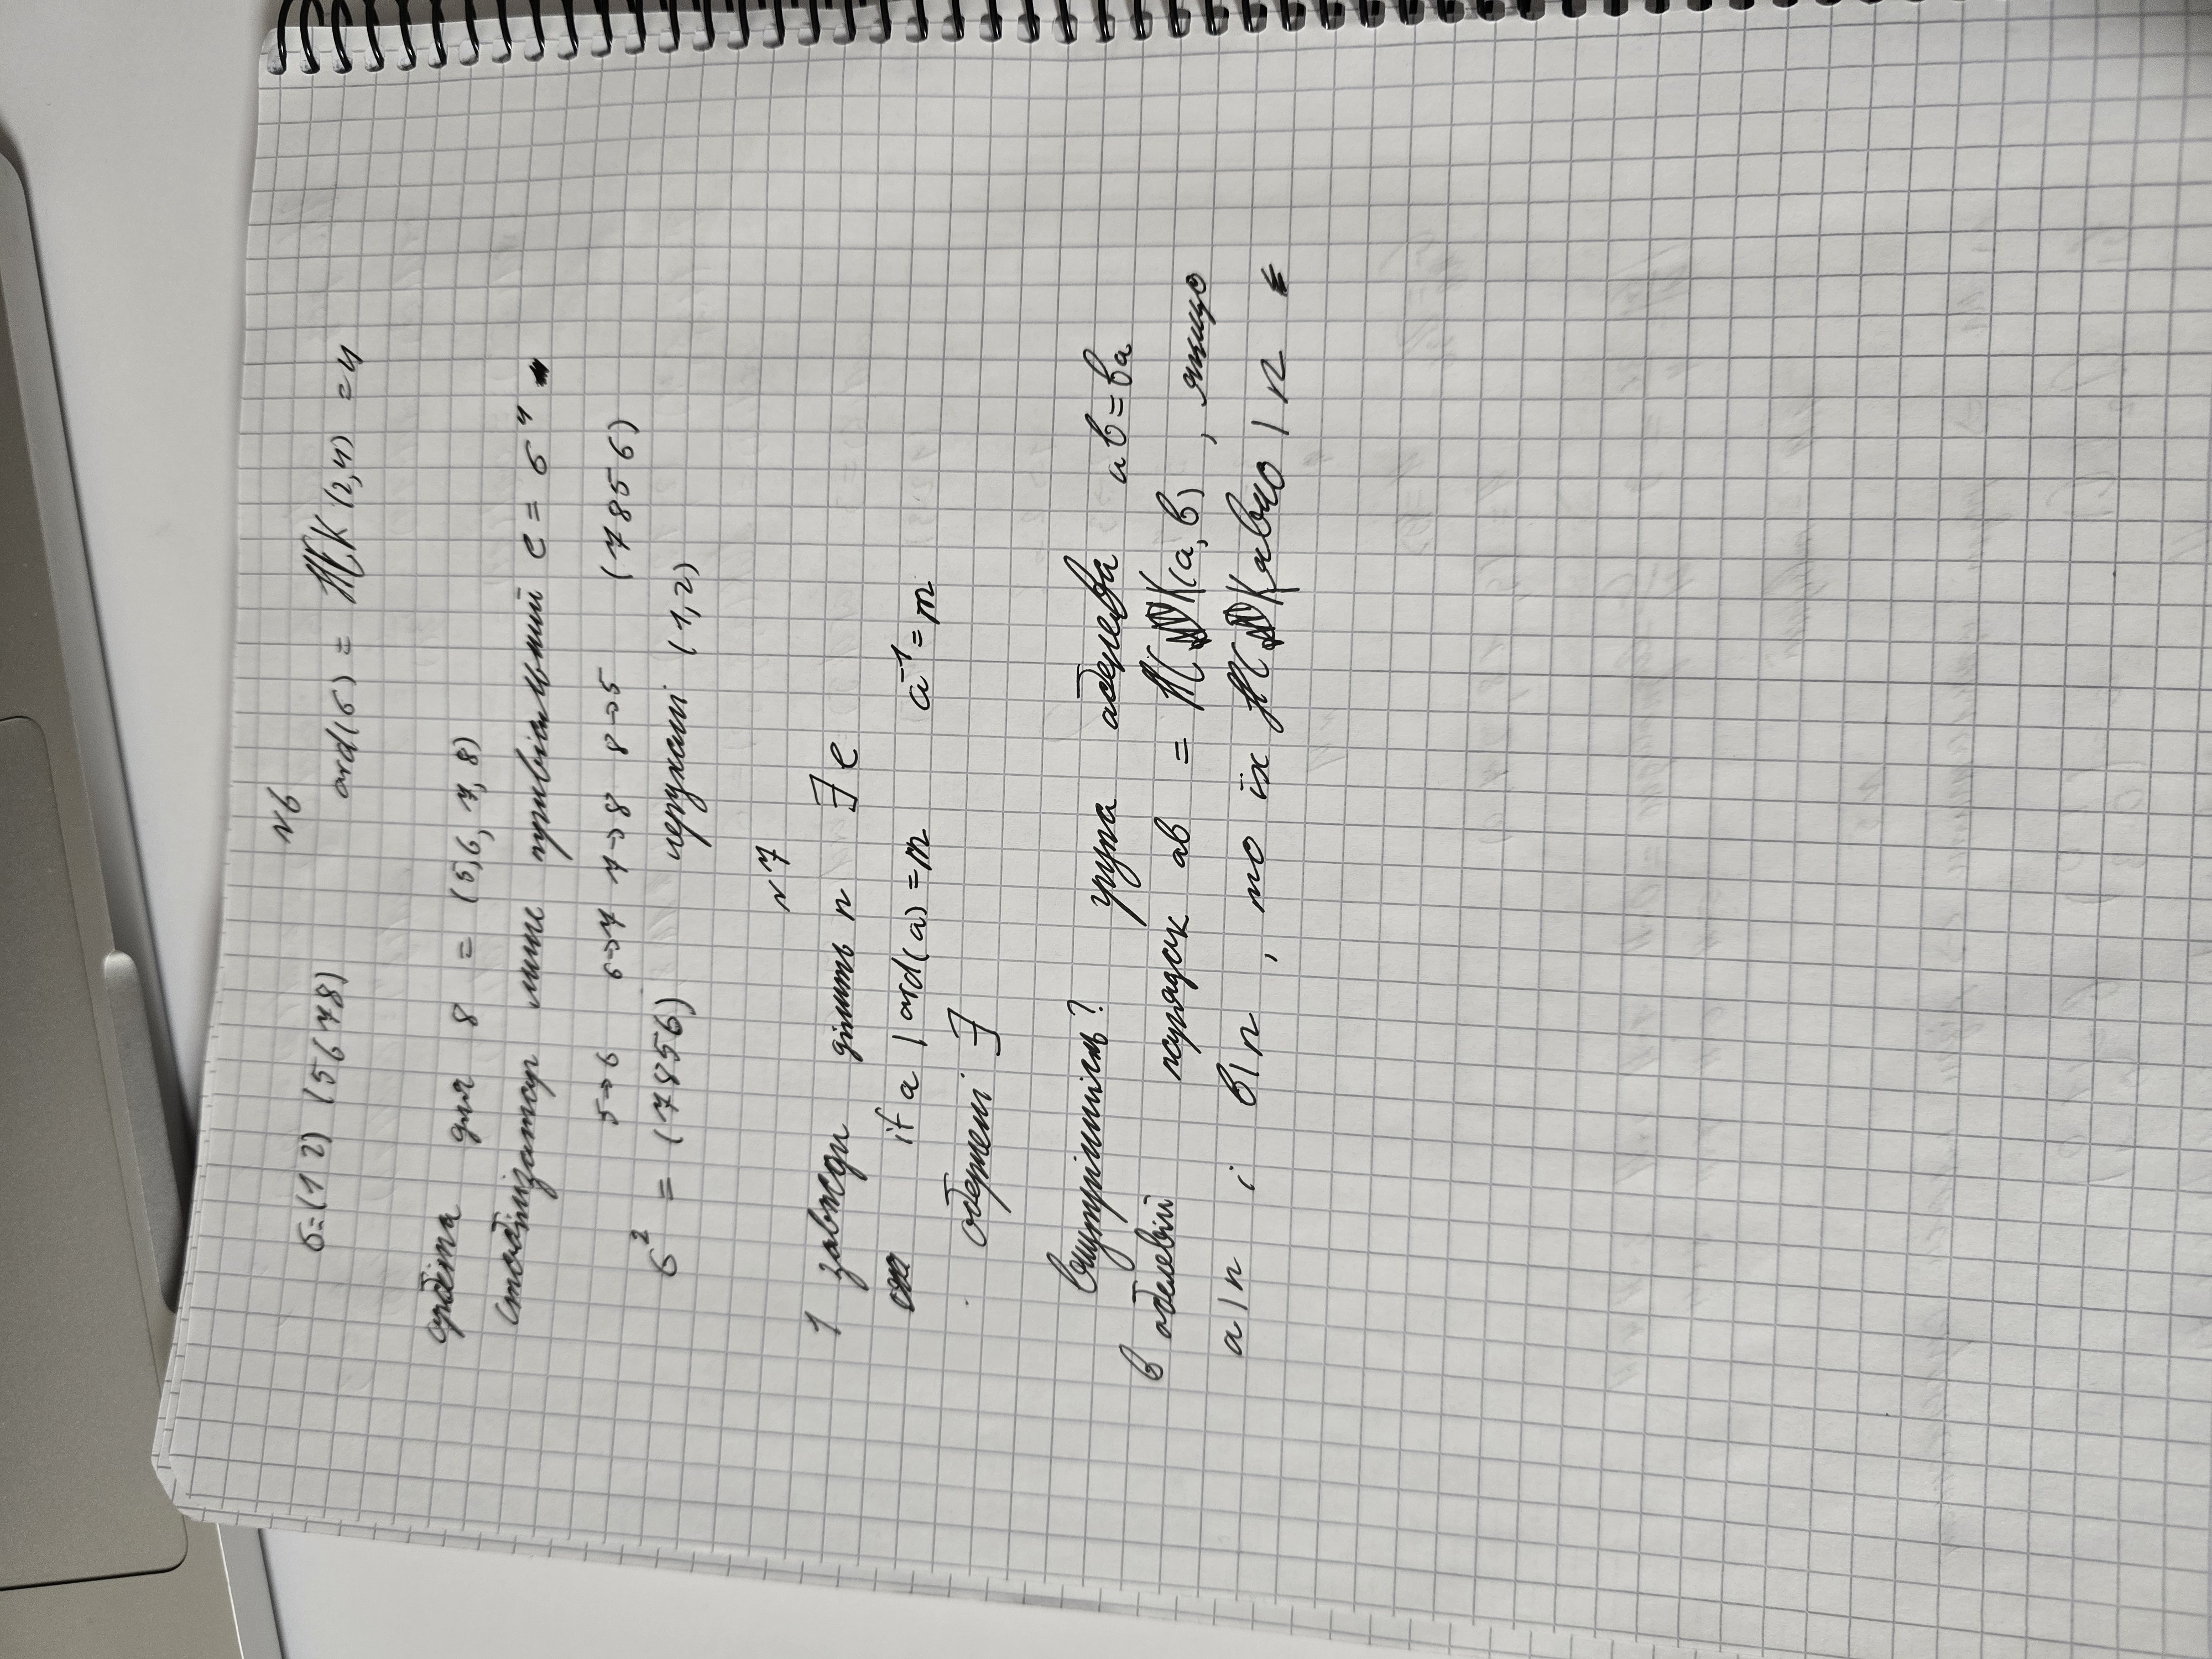 №6
σ=(1 2) (5 6 7 8) ord(σ) = НСК (2,4) = 4
орбіта для 8 = (5,6, 7, 8)
стабілізатор лише тривіальний e = σ⁴
5→6 6→7 7→8 8→5 (7 8 5 6)
σ² = (7856) нерухомі (1,2)
№7
1 завжди ділить n ∃ e
if a | ord(a) = m a⁻¹ = m
обернені ∃
Внутрішність? група абелева ab=ba
В абелевій порядок ab = НСК(a, b) , якщо
a|n і b|n , то їх НСК явно | n